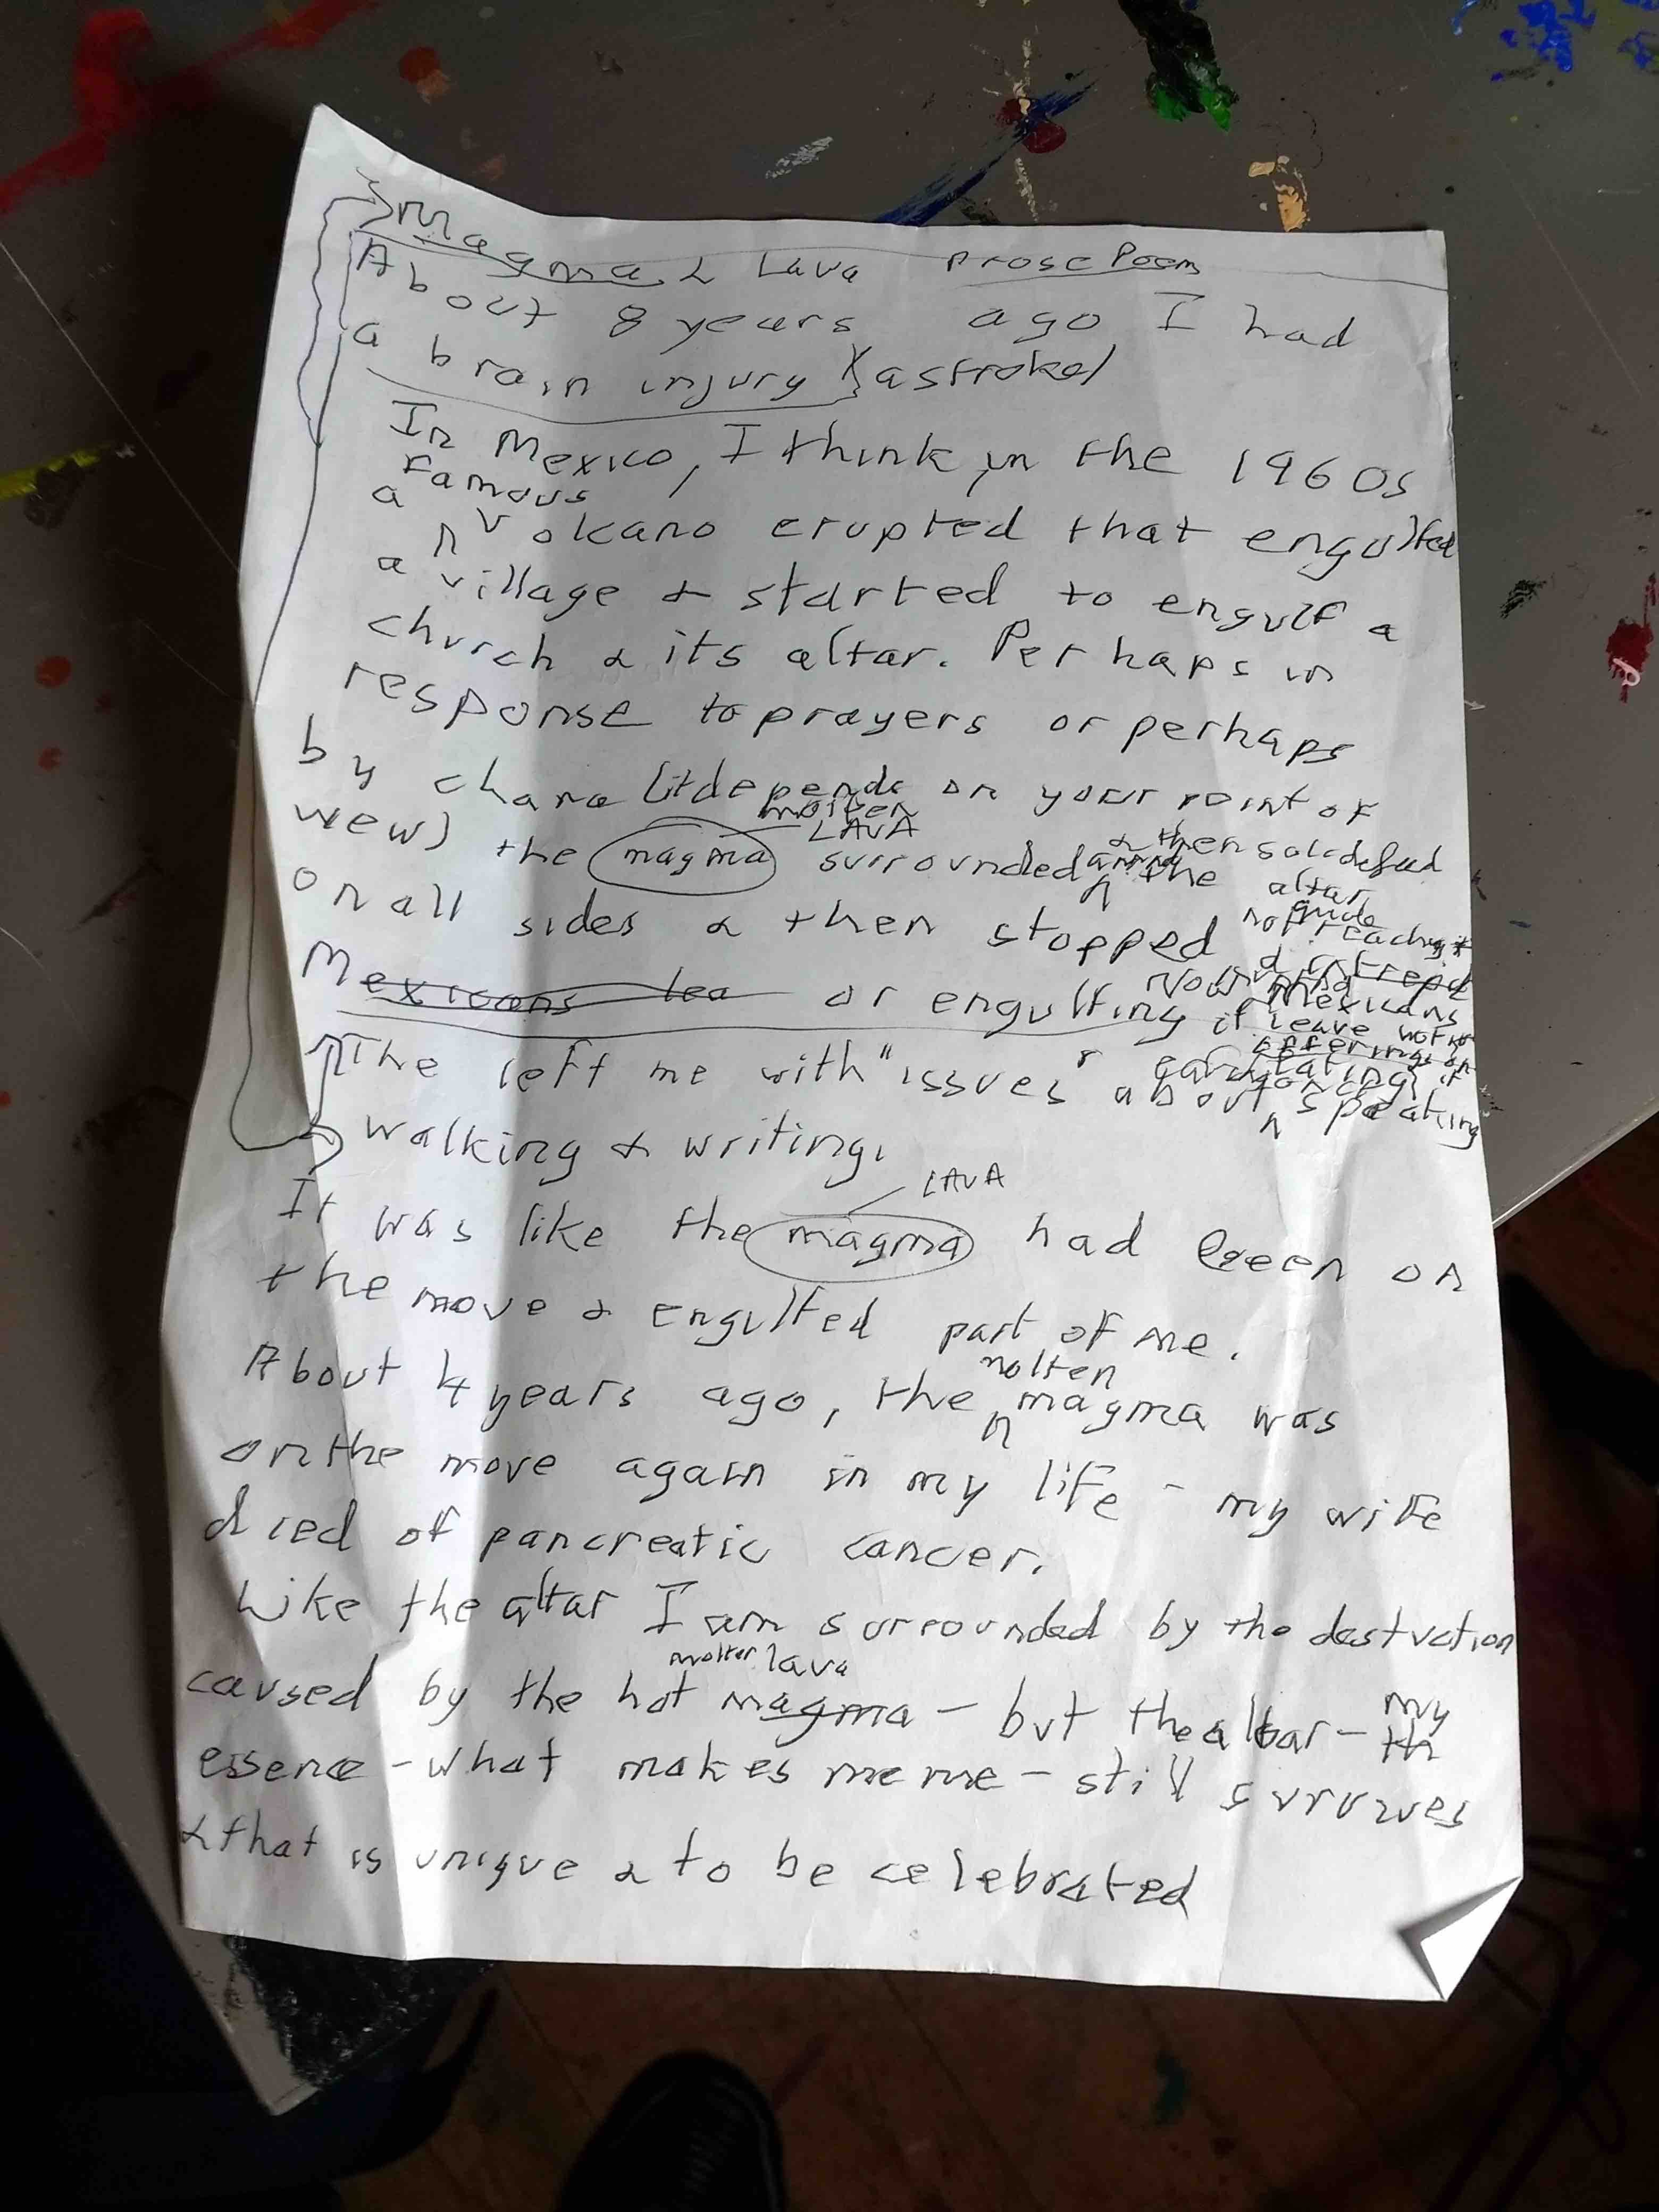 Magma & Lava prose Poem
About 8 years ago I had
a brain injury (a stroke)
In Mexico, I think in the 1960s
a famous volcano erupted that engulfed
a village & started to engulf a
church & its altar. Perhaps in
response to prayers or perhaps
by chance (it depends on your point of
view) the magma molten LAVA surrounded & then the altar
on all sides & then stopped not quite reaching it
Mexicans lea or engulfing it
Mexicans
leave
offerings on
The left me with "issues" about speaking
walking & writing.
It was like the magma LAVA had been on
the move & engulfed part of me.
About 4 years ago, the molten magma was
on the move again in my life - my wife
died of pancreatic cancer.
Like the altar I am surrounded by the destruction
caused by the hot magma molten lava - but the altar - th my
essence - what makes me me - still survives
& that is unique & to be celebrated